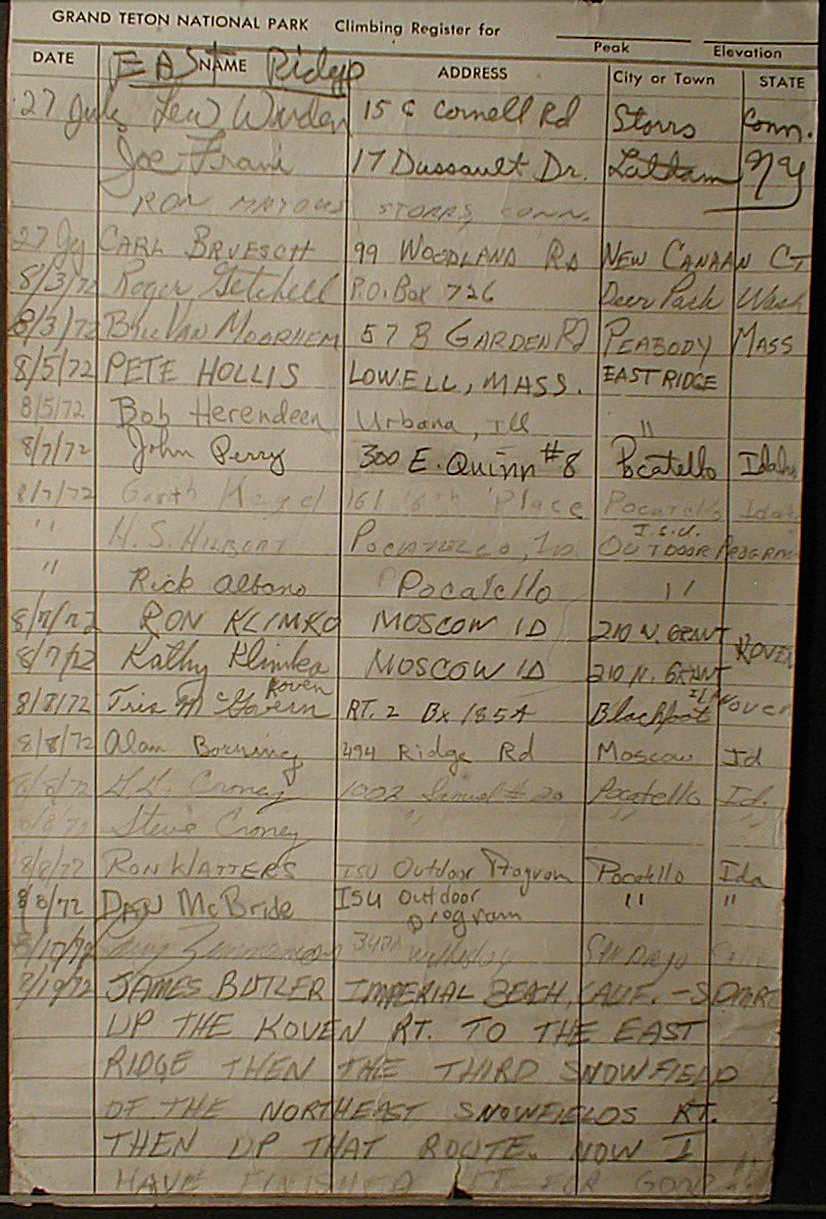 GRAND TETON NATIONAL PARK Climbing Register for
Peak Elevation
DATE NAME ADDRESS City or Town STATE
EAST Ridge
27 July Lew Warden 15 C Cornell Rd Storrs Conn.
Joe Frani 17 Dussault Dr. Latham NY
RON MATOUS STORRS, CONN.
27 Jy CARL BRUESCH 99 WOODLAND RD NEW CANAAN CT
8/3/72 Roger Getchell P.O. Box 726 Deer Park Wash
8/3/72 BILL VAN MOORHEM 57 B GARDEN Rd PEABODY MASS
8/5/72 PETE HOLLIS LOWELL, MASS. EAST RIDGE
8/5/72 Bob Herendeen Urbana, Ill "
8/7/72 John Perry 300 E. Quinn #8 Pocatello Idaho
8/7/72 161 Place Pocatello Idaho
" H. S. HILBERT POCATELLO, ID. I.S.U. OUTDOOR PROGRAM
" Rick Albano Pocatello "
8/7/72 RON KLIMKO MOSCOW ID 210 N. GRANT
8/7/72 Kathy Klimko MOSCOW ID 210 N. GRANT KOVEN
8/8/72 Tris McGovern Koven RT. 2 Bx 185A Blackfoot Koven
8/8/72 Alan Borning 494 Ridge Rd Moscow Id
8/8/72 Croney 1002 # 20 Pocatello Id.
8/8/72 Steve Croney " " "
8/8/72 RON WATTERS ISU Outdoor Program Pocatello Ida
8/8/72 DAN McBride ISU Outdoor program " "
Zimmerman
JAMES BUTLER IMPERIAL BEACH, CALIF. -
UP THE KOVEN RT. TO THE EAST
RIDGE THEN THE THIRD SNOWFIELD
OF THE NORTHEAST SNOWFIELDS RT.
THEN UP THAT ROUTE. NOW I
HAVE FINISHED IT FOR GOOD